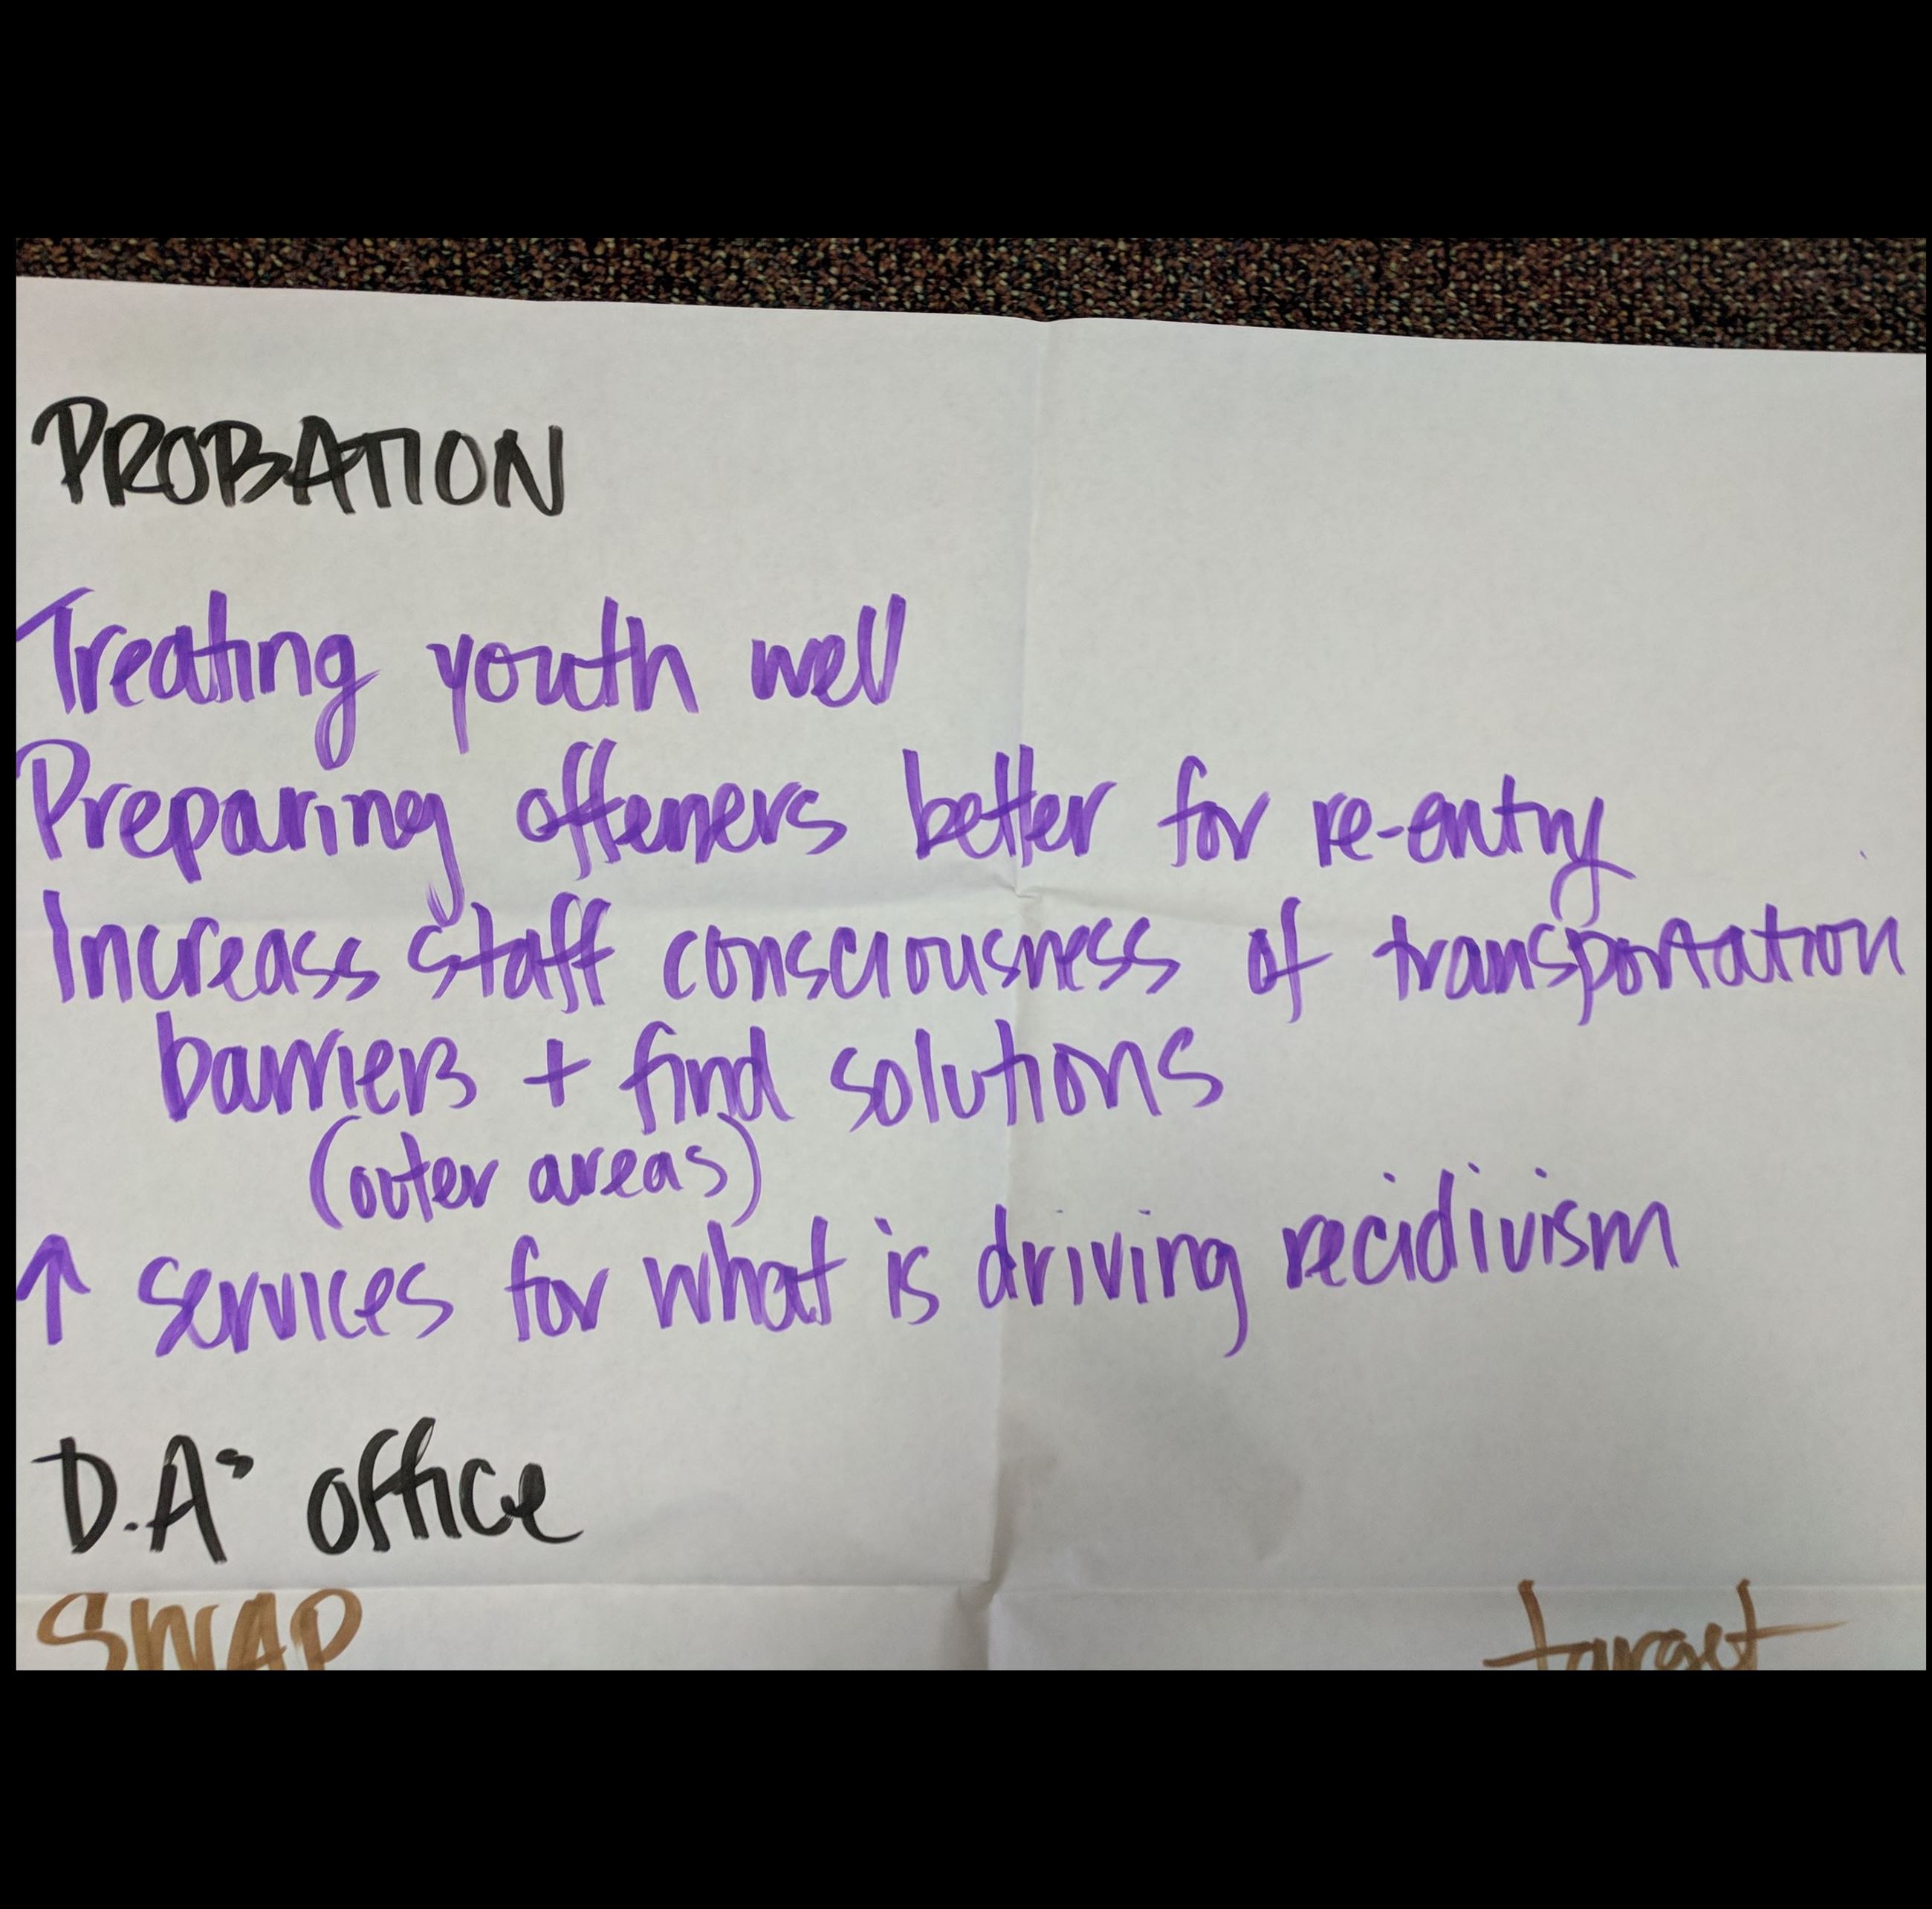 PROBATION
Treating youth well
Preparing offeners better for re-entry
Increass staff consciousness of transportation
barriers + find solutions
(outer areas)
↑ services for what is driving recidivism
D.A's office
SWAP target